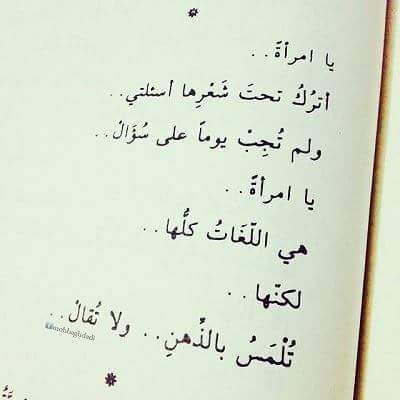 يا امرأةً . .
أترُكُ تحتَ شَعْرِها أسئلتي . .
ولم تُجِبْ يوماً على سُؤَالْ . .
يا امرأةً . .
هي اللّغَاتُ كلُّها . .
لكنّها . .
تُلْمَسُ بالذِّهنِ . . ولا تُقالْ . .